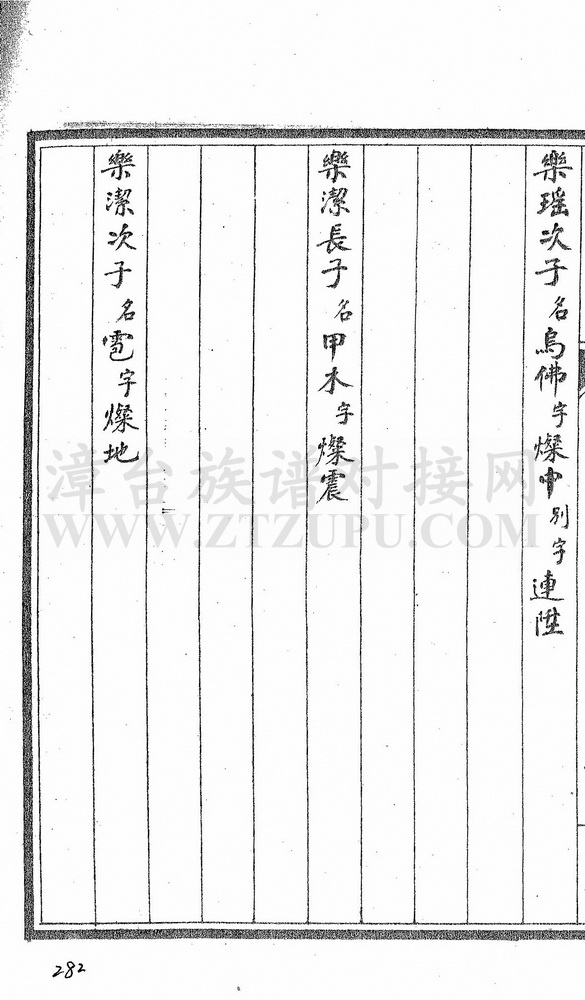 樂瑶次子名烏佛字燦中别字連陞
樂潔長子名甲木字燦震
樂潔次子名雹字燦地
漳台族谱对接网
WWW.ZTZUPU.COM
282